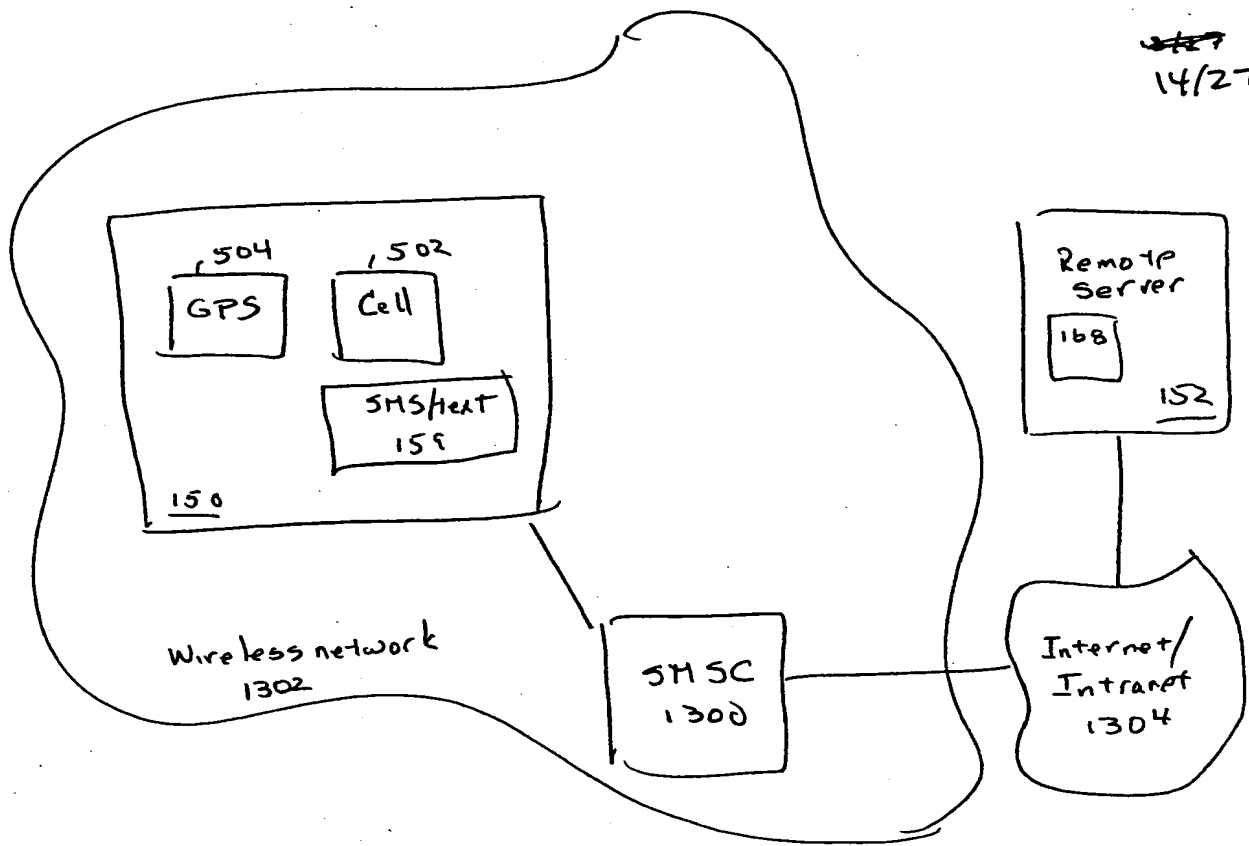 14/27
504
502
GPS
Cell
SMS/text
150
Remote
Server
168
152
Wireless network
1302
SMSC
1300
Internet/
Intranet
1304